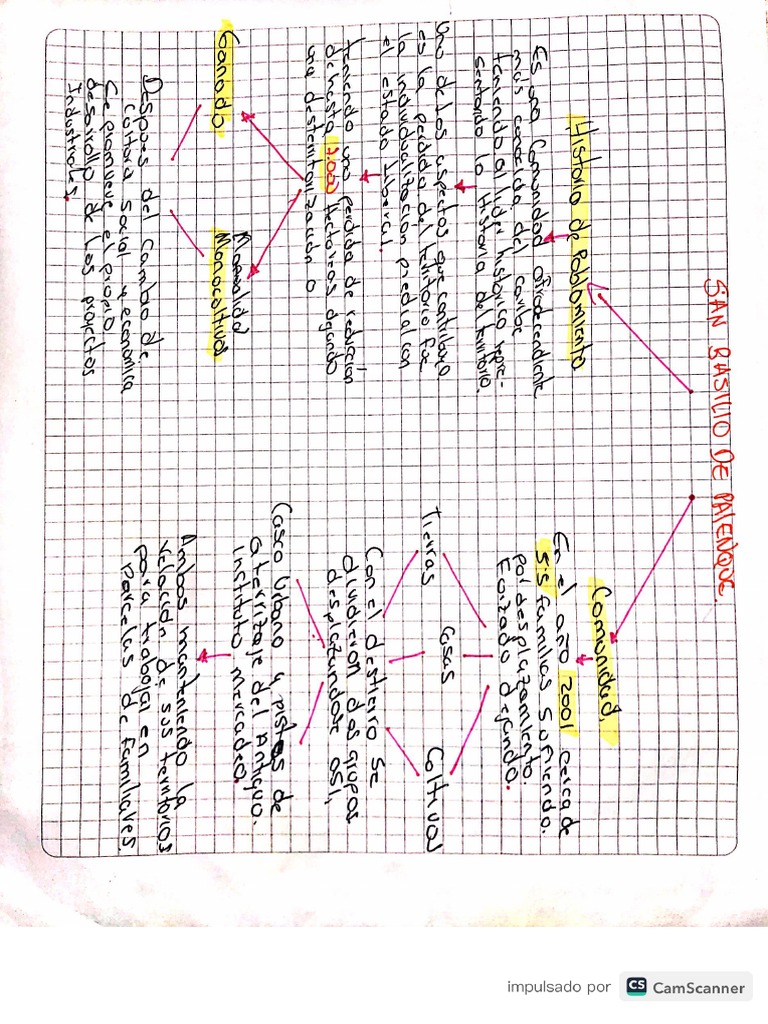 SAN BASILIO DE PALENQUE.
Historia de Poblamiento
Es una Comunidad afrodecendiente
mas conocida del caribe
teniendo al lider historico repre-
sentando la Historia del territorio.
Uno de los aspectos que contribuyo
es la perdida del territorio fue
la individualización predial con
el estado liberal.
teniendo una perdida de reducción
de hasta
hectareas dejando
una desterritorialización o
Ganado
Monocultivos
Despues del Cambio de
Cultura Social y económica
Se promueve el propio
desarrollo de los proyectos
Industriales.
Comunidad.
En el año 2001 cerca de
sis familias Sufriendo.
por desplazamiento.
Forzado dejando.
Tierras
Casas
Cultivos
Con el destierro se
dividieron dos grupos
desplazandose asi,
Casco Urbano y pistas de
aterrizaje del Antiguo.
instituto mercadeo.
Ambos manteniendo la
relación de sus territorios
para trabajar en
Parcelas de familiares
impulsado por CS CamScanner